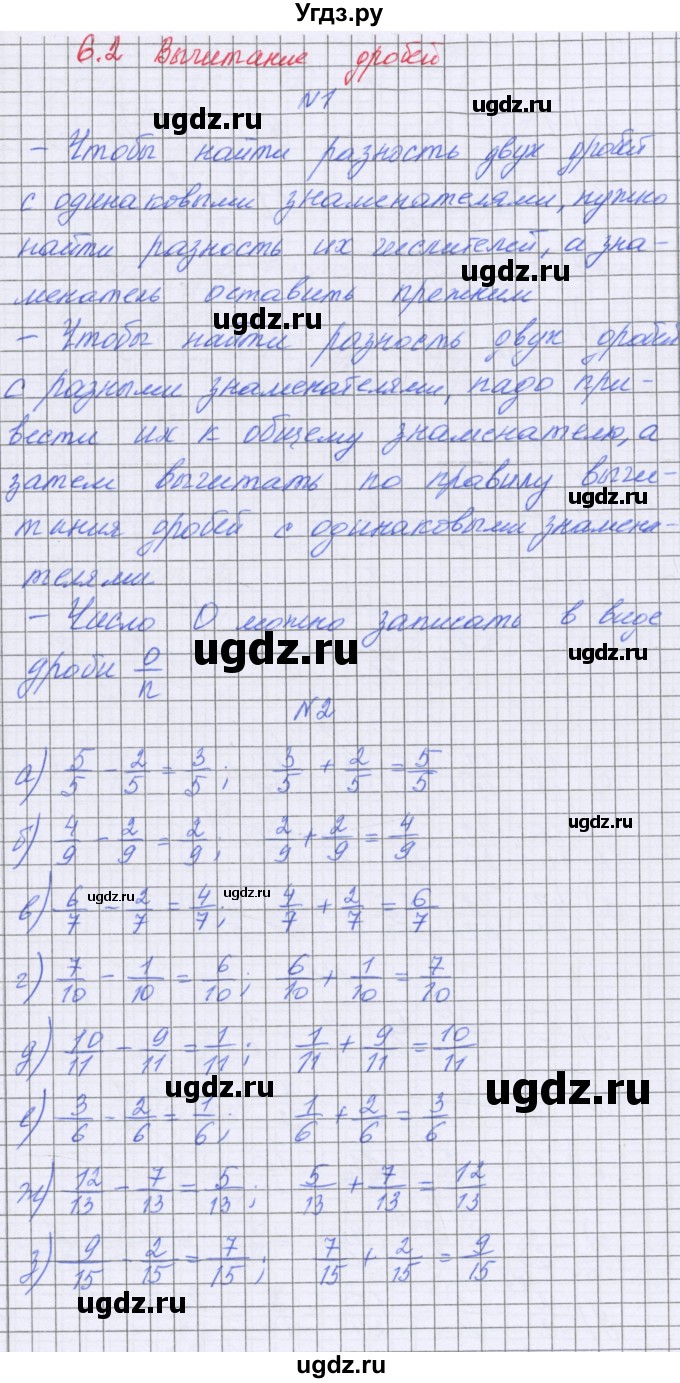 Угдз.ру
6.2 Вычитание дробей
ugdz.ru
N1
ugdz.ru
- Чтобы найти разность двух дробей
с одинаковыми знаменателями, нужно
найти разность их числителей, а зна-
ugdz.ru
менатель оставить прежним
ugdz.ru
- Чтобы найти разность двух дробей
с разными знаменателями, надо при-
вести их к общему знаменателю, а
затем вычитать по правилу вычи-
ugdz.ru
тания дробей с одинаковыми знамена-
телями.
- Число 0 можно записать в виде
ugdz.ru
дроби 0/n
N2
а) 5/5 - 2/5 = 3/5; 3/5 + 2/5 = 5/5
ugdz.ru
б) 4/9 - 2/9 = 2/9; 2/9 + 2/9 = 4/9
ugdz.ru ugdz.ru
в) 6/7 - 2/7 = 4/7; 4/7 + 2/7 = 6/7
г) 7/10 - 1/10 = 6/10; 6/10 + 1/10 = 7/10
д) 10/11 - 9/11 = 1/11; 1/11 + 9/11 = 10/11
ugdz.ru ugdz.ru
е) 3/6 - 2/6 = 1/6; 1/6 + 2/6 = 3/6
ж) 12/13 - 7/13 = 5/13; 5/13 + 7/13 = 12/13
з) 9/15 - 2/15 = 7/15; 7/15 + 2/15 = 9/15
ugdz.ru
ugdz.ru